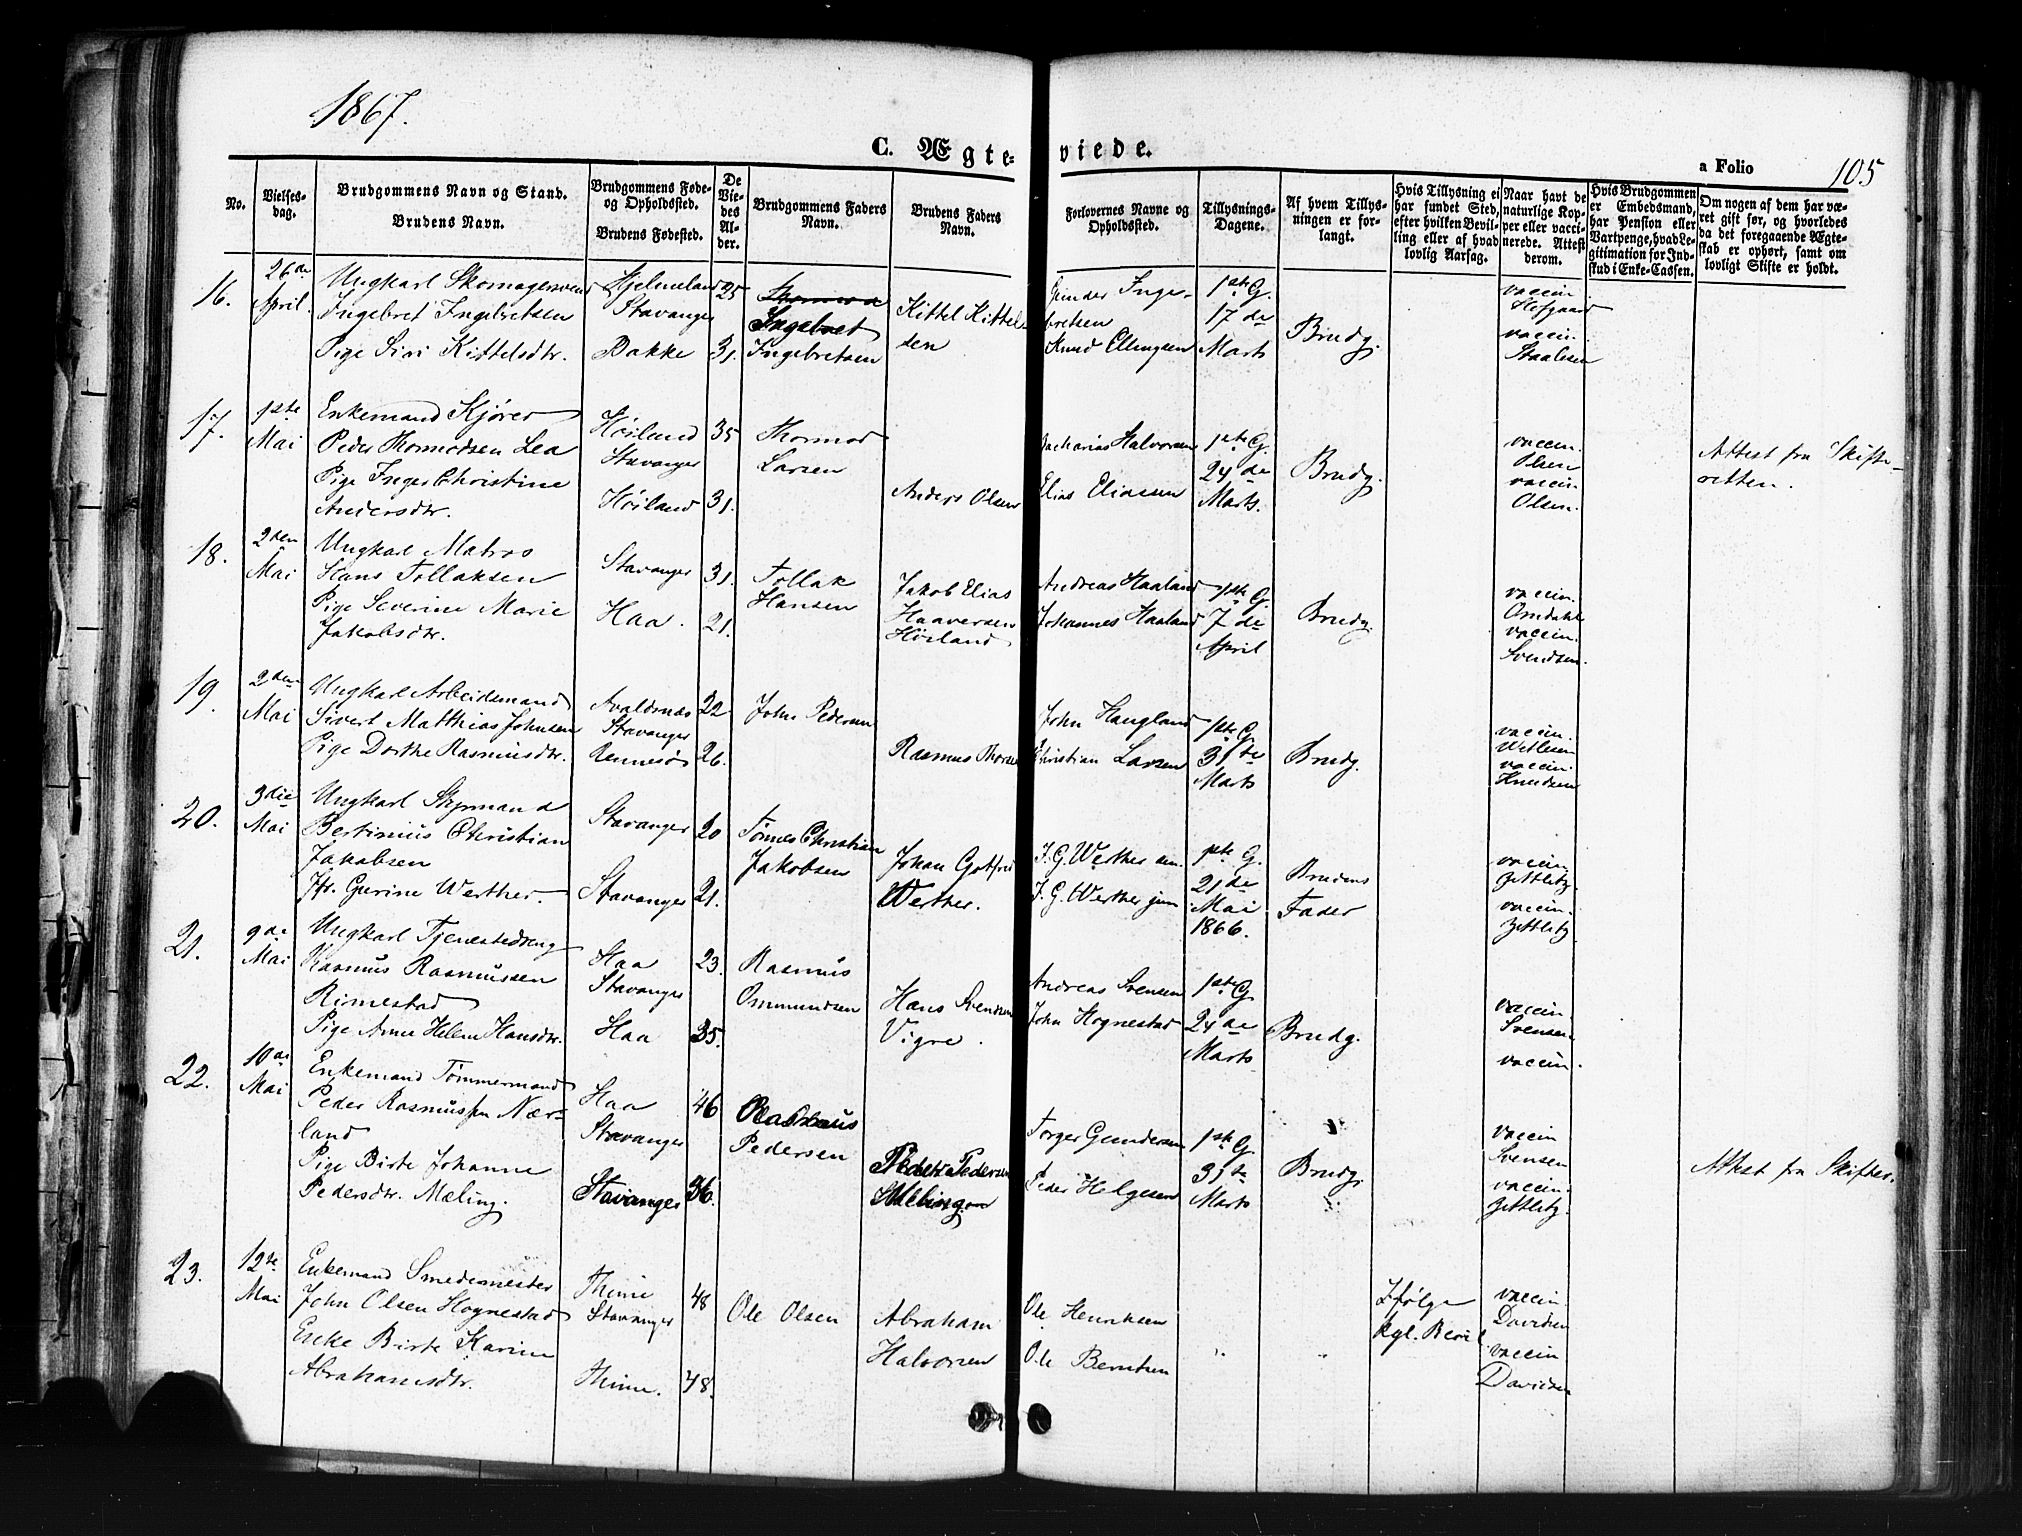 1867.
C. Ægteviede.
a Folio 105
No.
Vielsesdag.
Brudgommens Navn og Stand.
Brudens Navn.
Brudgommens Føde- og Opholdssted.
Brudens Fødested.
De Viedes Alder.
Brudgommens Faders Navn.
Brudens Faders Navn.
Forlovernes Navne og Opholdssted.
Tillysnings-Dagene.
Af hvem Tillysningen er forlangt.
Hvis Tillysning ei har fundet Sted, efter hvilken Bevilling eller af hvad lovlig Aarsag.
Naar havt de naturlige Kopper eller vaccinerede. Attest derom.
Hvis Brudgommen er Embedsmand, har Pension eller Vartpenge, hvad Legitimation for Indskud i Enke-Cassen.
Om nogen af dem har været gift før, og hvorledes da det foregaaende Ægteskab er ophørt, samt om lovligt Skifte er holdt.
16.
26de April.
Ungkarl Skomagersvend
Ingebret Ingebretsen
Pige Siri Kittelsdtr.
Hjelmeland
Stavanger
Bakke
25
31.
Ingebret
Ingebretsen
Kittel Kittelsen
Gunder Ingebretsen
Knud Ellingsen
1ste G.
17de
Marts
Brudg.
vaccin.
Hofgaard
vaccin.
Staalesen
17.
1ste Mai
Enkemand Kjører
Peder Thormodsen Lea
Pige Inger Christine
Andersdtr.
Höiland
Stavanger
Höiland
35
31.
Thormod
Larsen
Anders Olsen
Zacharias Halvorsen
Elias Eliassen
1ste G.
24de
Marts.
Brudg.
vaccin.
Olsen
vaccin.
Olsen.
Attest fra Skifteretten.
18.
2den Mai
Ungkarl Matros
Hans Tollaksen
Pige Severine Marie
Jakobsdtr.
Stavanger
Haa.
31.
21.
Tollak
Hansen
Jakob Elias
Haaversen
Höiland
Andreas Haaland
Johannes Haaland
1ste G.
7de
April
Brudg.
vaccin.
Omdahl
vaccin.
Svendsen.
19.
2den Mai
Ungkarl Arbeidsmand
Sivert Matthias Johnsen
Pige Dorthe Rasmusdtr.
Avaldsnæs
Stavanger
Rennesö
22
26.
John Pedersen
Rasmus Thorsen
John Haugland
Christian Larsen
1ste G.
31te
Marts
Brudg.
vaccin.
vaccin.
Knudsen
20.
3die Mai
Ungkarl Styrmand
Bertinius Christian
Jakobsen
Jfr. Gurine Werther.
Stavanger
Stavanger
20
21.
Tönnes Christian
Jakobsen
Johan Gotfried
Werther.
J. G. Werther sen.
J. G. Werther jun
1ste G.
21de
Mai
1866.
Brudens
Fader
vaccin.
Zettlitz.
vaccin.
Zettlitz.
21.
9de Mai
Ungkarl Tjenestedreng
Rasmus Rasmussen
Rimestad
Pige Anne Helene Hansdtr.
Haa
Stavanger
Haa
23.
35.
Rasmus
Ommundsen
Hans Svendsen
Vigre.
Andreas Svensen
John Hognestad
1ste G.
24de
Marts
Brudg.
vaccin.
Svensen
vaccin.
22.
10de Mai
Enkemand Tömmermand
Peder Rasmussen Nærland
Pige Birte Johanne
Pedersdtr. Mæling.
Haa
Stavanger
Stavanger
46
36.
Rasmus
Pedersen
Peder Pedersen
Mæling
Torger Gundersen
Peder Helgesen
1ste G.
31te
Marts
Brudg.
vaccin
Svensen
vaccin.
Zettlitz.
Attest fra Skifter.
23.
12te Mai
Enkemand Smedemester
John Olsen Hognestad
Enke Birte Karine
Abrahamsdtr.
Thime
Stavanger
Thime.
48
48.
Ole Olsen
Abraham
Halvorsen
Ole Henriksen
Ole Berntsen
"
"
Ifølge
kgl. Bevil.
vaccin.
Davidsen
vaccin
Davidsen